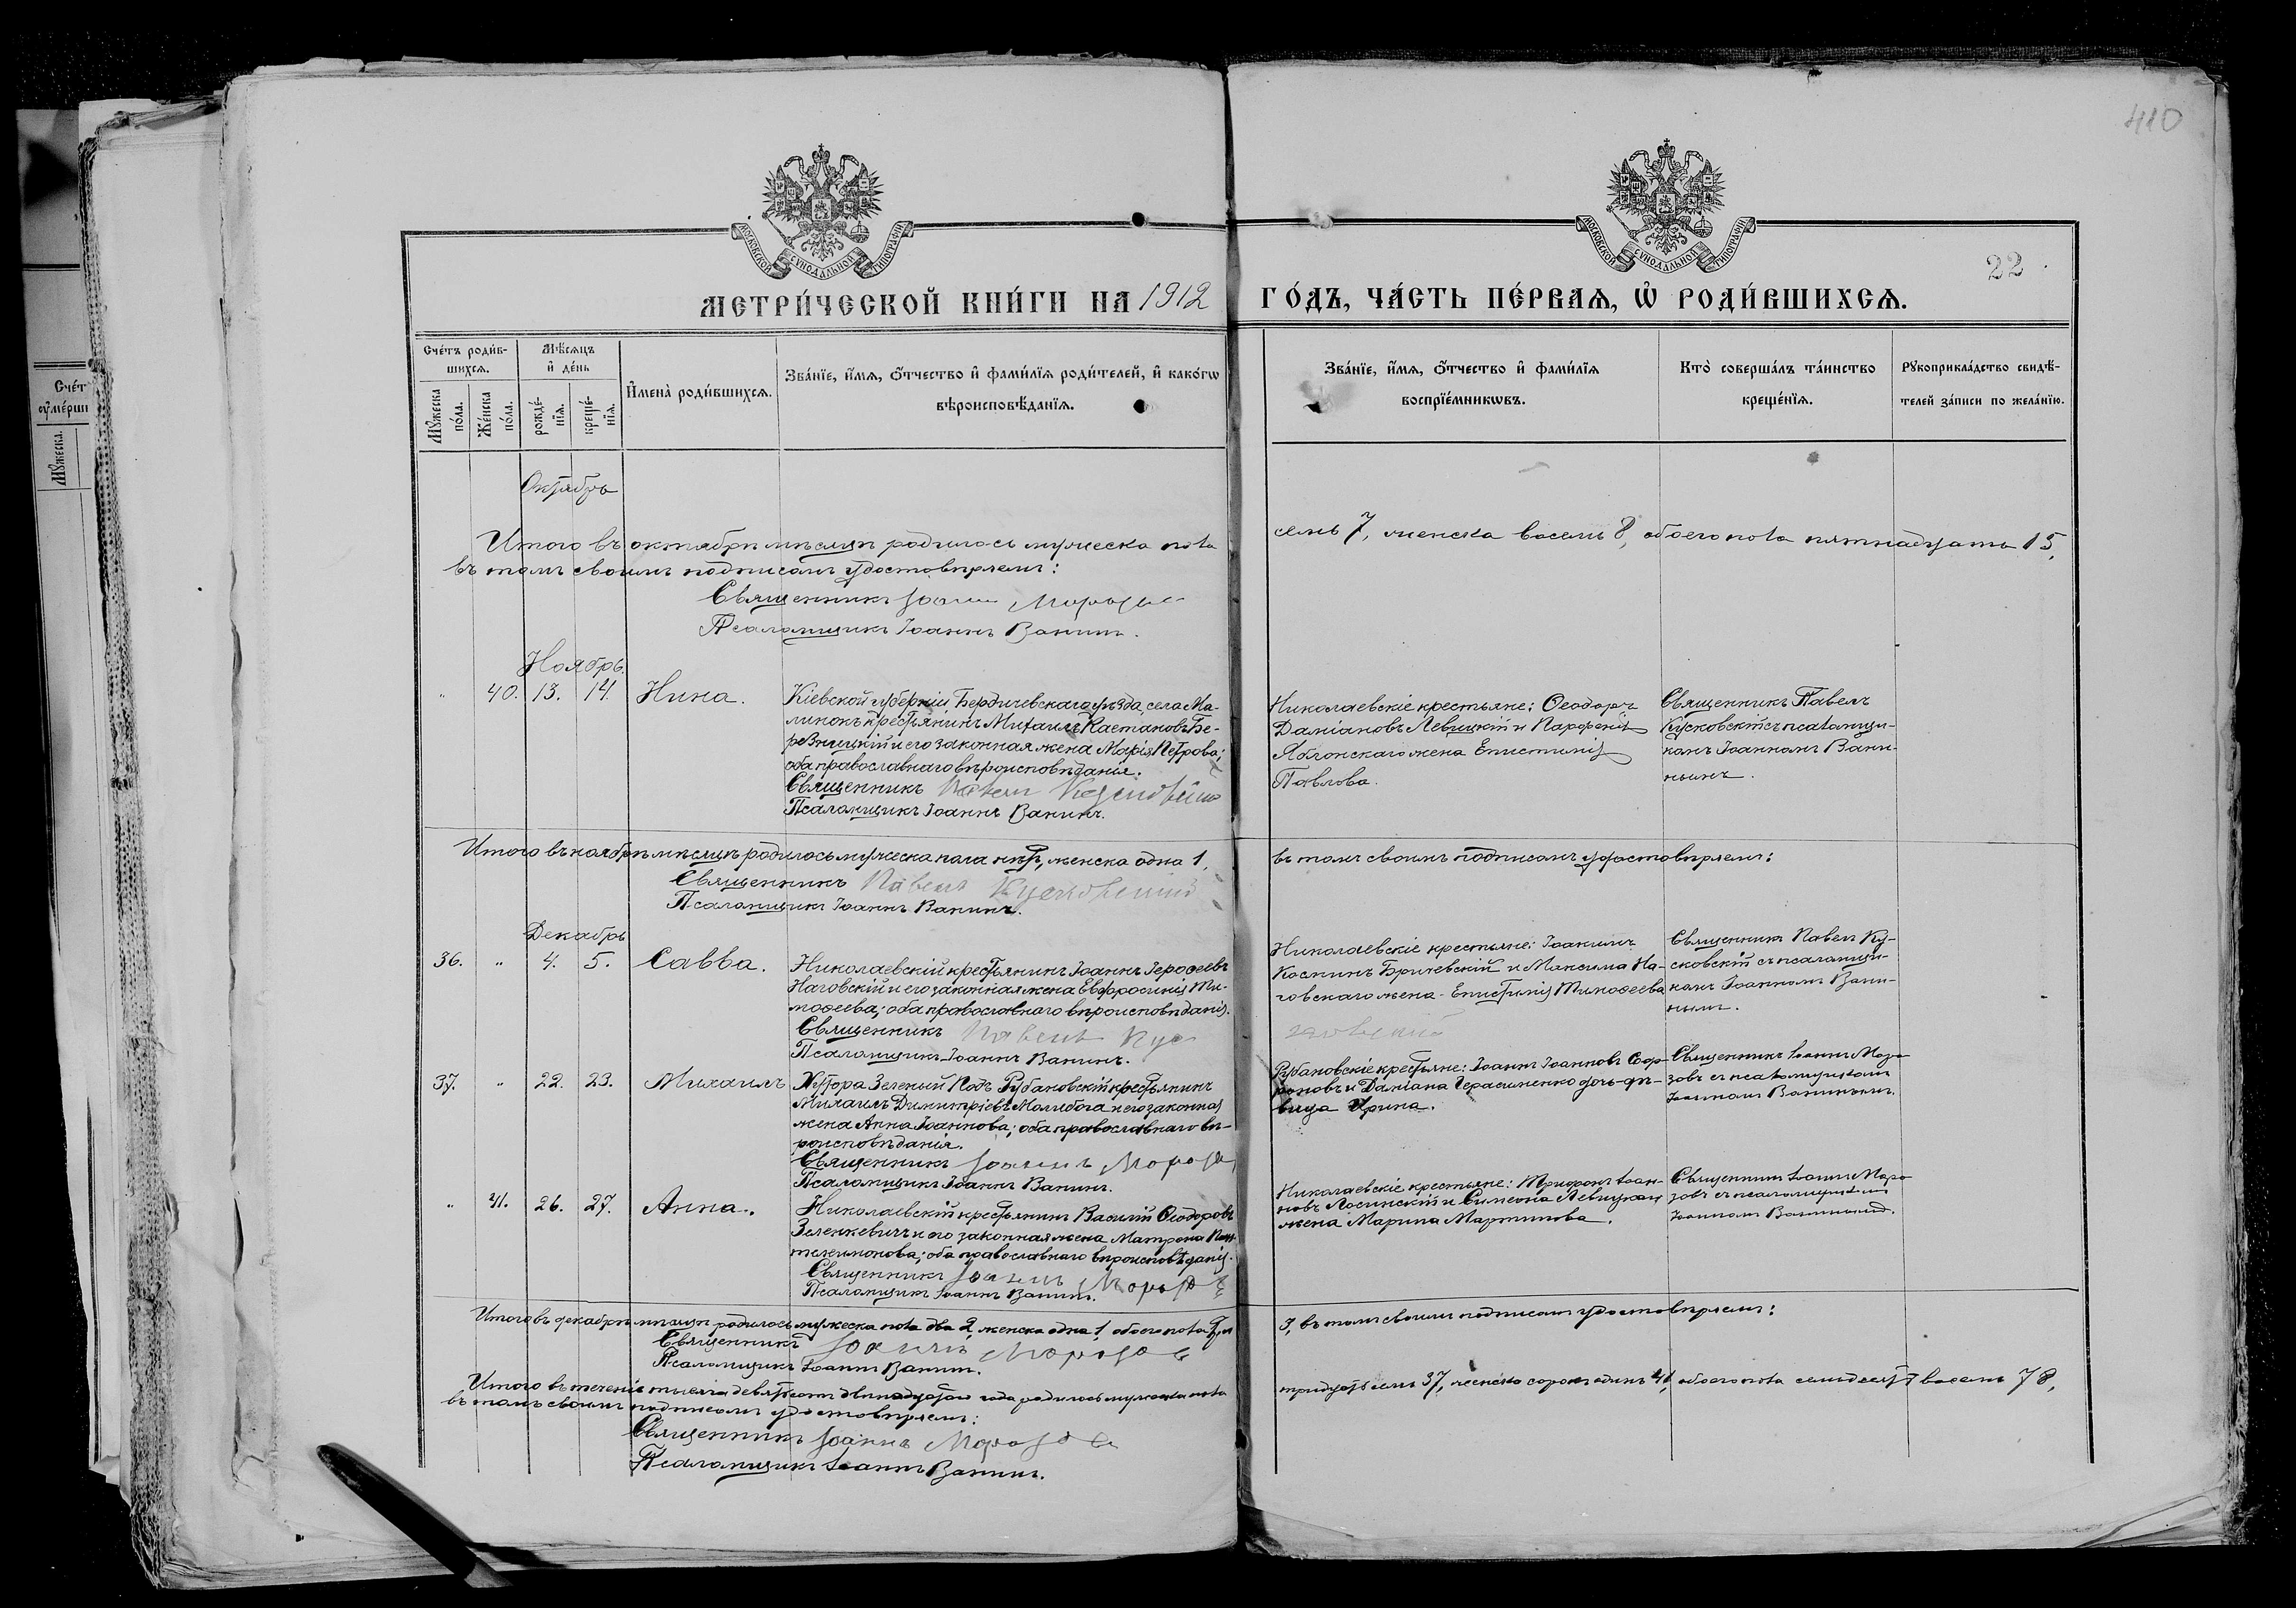 410
МОСКОВСКОЙ СѴНОДАЛЬНОЙ ТИПОГРАФІИ
МОСКОВСКОЙ СѴНОДАЛЬНОЙ ТИПОГРАФІИ
22
МЕТРИ́ЧЕСКОЙ КНИ́ГИ НА 1912
ГО́ДЪ, ЧА́СТЬ ПЕ́РВАѦ, Ѽ РОДИ́ВШИХСѦ.
Сче́тъ роди́в-
шихсѧ.
Мꙋжеска по́ла.
Же́нска по́ла.
Мѣ́сѧцъ и҆ де́нь
рожде́-
нїѧ.
креще́-
нїѧ.
И҆мена̀ роди́вшихсѧ.
Зва́нїе, и҆́мѧ, ѻ҆́тчество и҆ фами́лїѧ роди́телей, и҆ како́гѡ
вѣроисповѣ́данїѧ.
Зва́нїе, и҆́мѧ, ѻ҆́тчество и҆ фами́лїѧ
воспрїе́мникѡвъ.
Кто̀ соверша́лъ та́инство
креще́нїѧ.
Рꙋкоприкла́дство свидѣ́-
телей за́писи по жела́нїю.
Счет
ꙋме́рши
Мꙋжеска.
Октябрь
Итого въ октябрѣ мѣсяцѣ родилось мужеска пола
семь 7, женска восемь 8, обоего пола пятнадцать 15,
въ томъ своимъ подписомъ удостовѣряемъ:
Священникъ Іоаннъ Морозовъ
Псаломщикъ Іоаннъ Ванинъ.
Ноябрь.
" 40. 13. 14. Нина.
Кіевской губерніи, Бердичевскаго уѣзда, села Ма-
линокъ крестьянинъ Михаилъ Каетановъ Бе-
резницкій и его законная жена Марія Петрова;
оба православнаго вѣроисповѣданія.
Священникъ Павелъ Кусковскій
Псаломщикъ Іоаннъ Ванинъ.
Николаевскіе крестьяне: Ѳеодоръ
Даміановъ Левицкій и Парфенія
Яблонскаго жена Епистимія
Павлова.
Священникъ Павелъ
Кусковскій съ псаломщи-
комъ Іоанномъ Вани-
нымъ.
Итого въ ноябрѣ мѣсяцѣ родилось мужеска пола нѣтъ, женска одна 1,
въ томъ своимъ подписомъ удостовѣряемъ:
Священникъ Павелъ Кусковскій
Псаломщикъ Іоаннъ Ванинъ.
Декабрь
36. " 4. 5. Савва.
Николаевскій крестьянинъ Іоаннъ Іероѳеевъ
Наговскій и его законная жена Евфросинія Ти-
моѳеева; оба православнаго вѣроисповѣданія.
Священникъ Павелъ Кус
ковскій
Псаломщикъ Іоаннъ Ванинъ.
Николаевскіе крестьяне: Іоакимъ
Косминъ Бричевскій и Максима На-
говскаго жена Епистимія Тимоѳеева
Священникъ Павелъ Ку-
сковскій съ псаломщи-
комъ Іоанномъ Вани-
нымъ.
37. " 22. 23. Михаилъ
Хутора Зеленый Подъ Рубановскій крестьянинъ
Михаилъ Димитріевъ Молибога и его законная
жена Анна Іоаннова; оба православнаго вѣ-
роисповѣданія.
Священникъ Іоаннъ Морозовъ
Псаломщикъ Іоаннъ Ванинъ.
Рубановскіе крестьяне: Іоаннъ Іоанновъ Соф-
роновъ и Даміана Герасименко дочь-дѣ-
вица Ирина.
Священникъ Іоаннъ Моро-
зовъ съ псаломщикомъ
Іоанномъ Ванинымъ.
" 41. 26. 27. Анна.
Николаевскій крестьянинъ Василій Ѳеодоровъ
Зеленкевичъ и его законная жена Матрона Пан-
телеимонова; оба православнаго вѣроисповѣданія.
Священникъ Іоаннъ Морозовъ
Псаломщикъ Іоаннъ Ванинъ.
Николаевскіе крестьяне: Трифонъ Іоан-
новъ Лосинскій и Симеона Левицкаго
жена Марина Мартинова.
Священникъ Іоаннъ Моро-
зовъ съ псаломщикомъ
Іоанномъ Ванинымъ.
Итого въ декабрѣ мѣсяцѣ родилось мужеска пола два 2, женска одна 1, обоего пола три
3, въ томъ своимъ подписомъ удостовѣряемъ:
Священникъ Іоаннъ Морозовъ
Псаломщикъ Іоаннъ Ванинъ.
Итого въ теченіе тысяча девятьсотъ двѣнадцатаго года родилось мужеска пола
тридцать семь 37, женска сорокъ одинъ 41, обоего пола семьдесятъ восемь 78,
въ томъ своимъ подписомъ удостовѣряемъ:
Священникъ Іоаннъ Морозовъ
Псаломщикъ Іоаннъ Ванинъ.